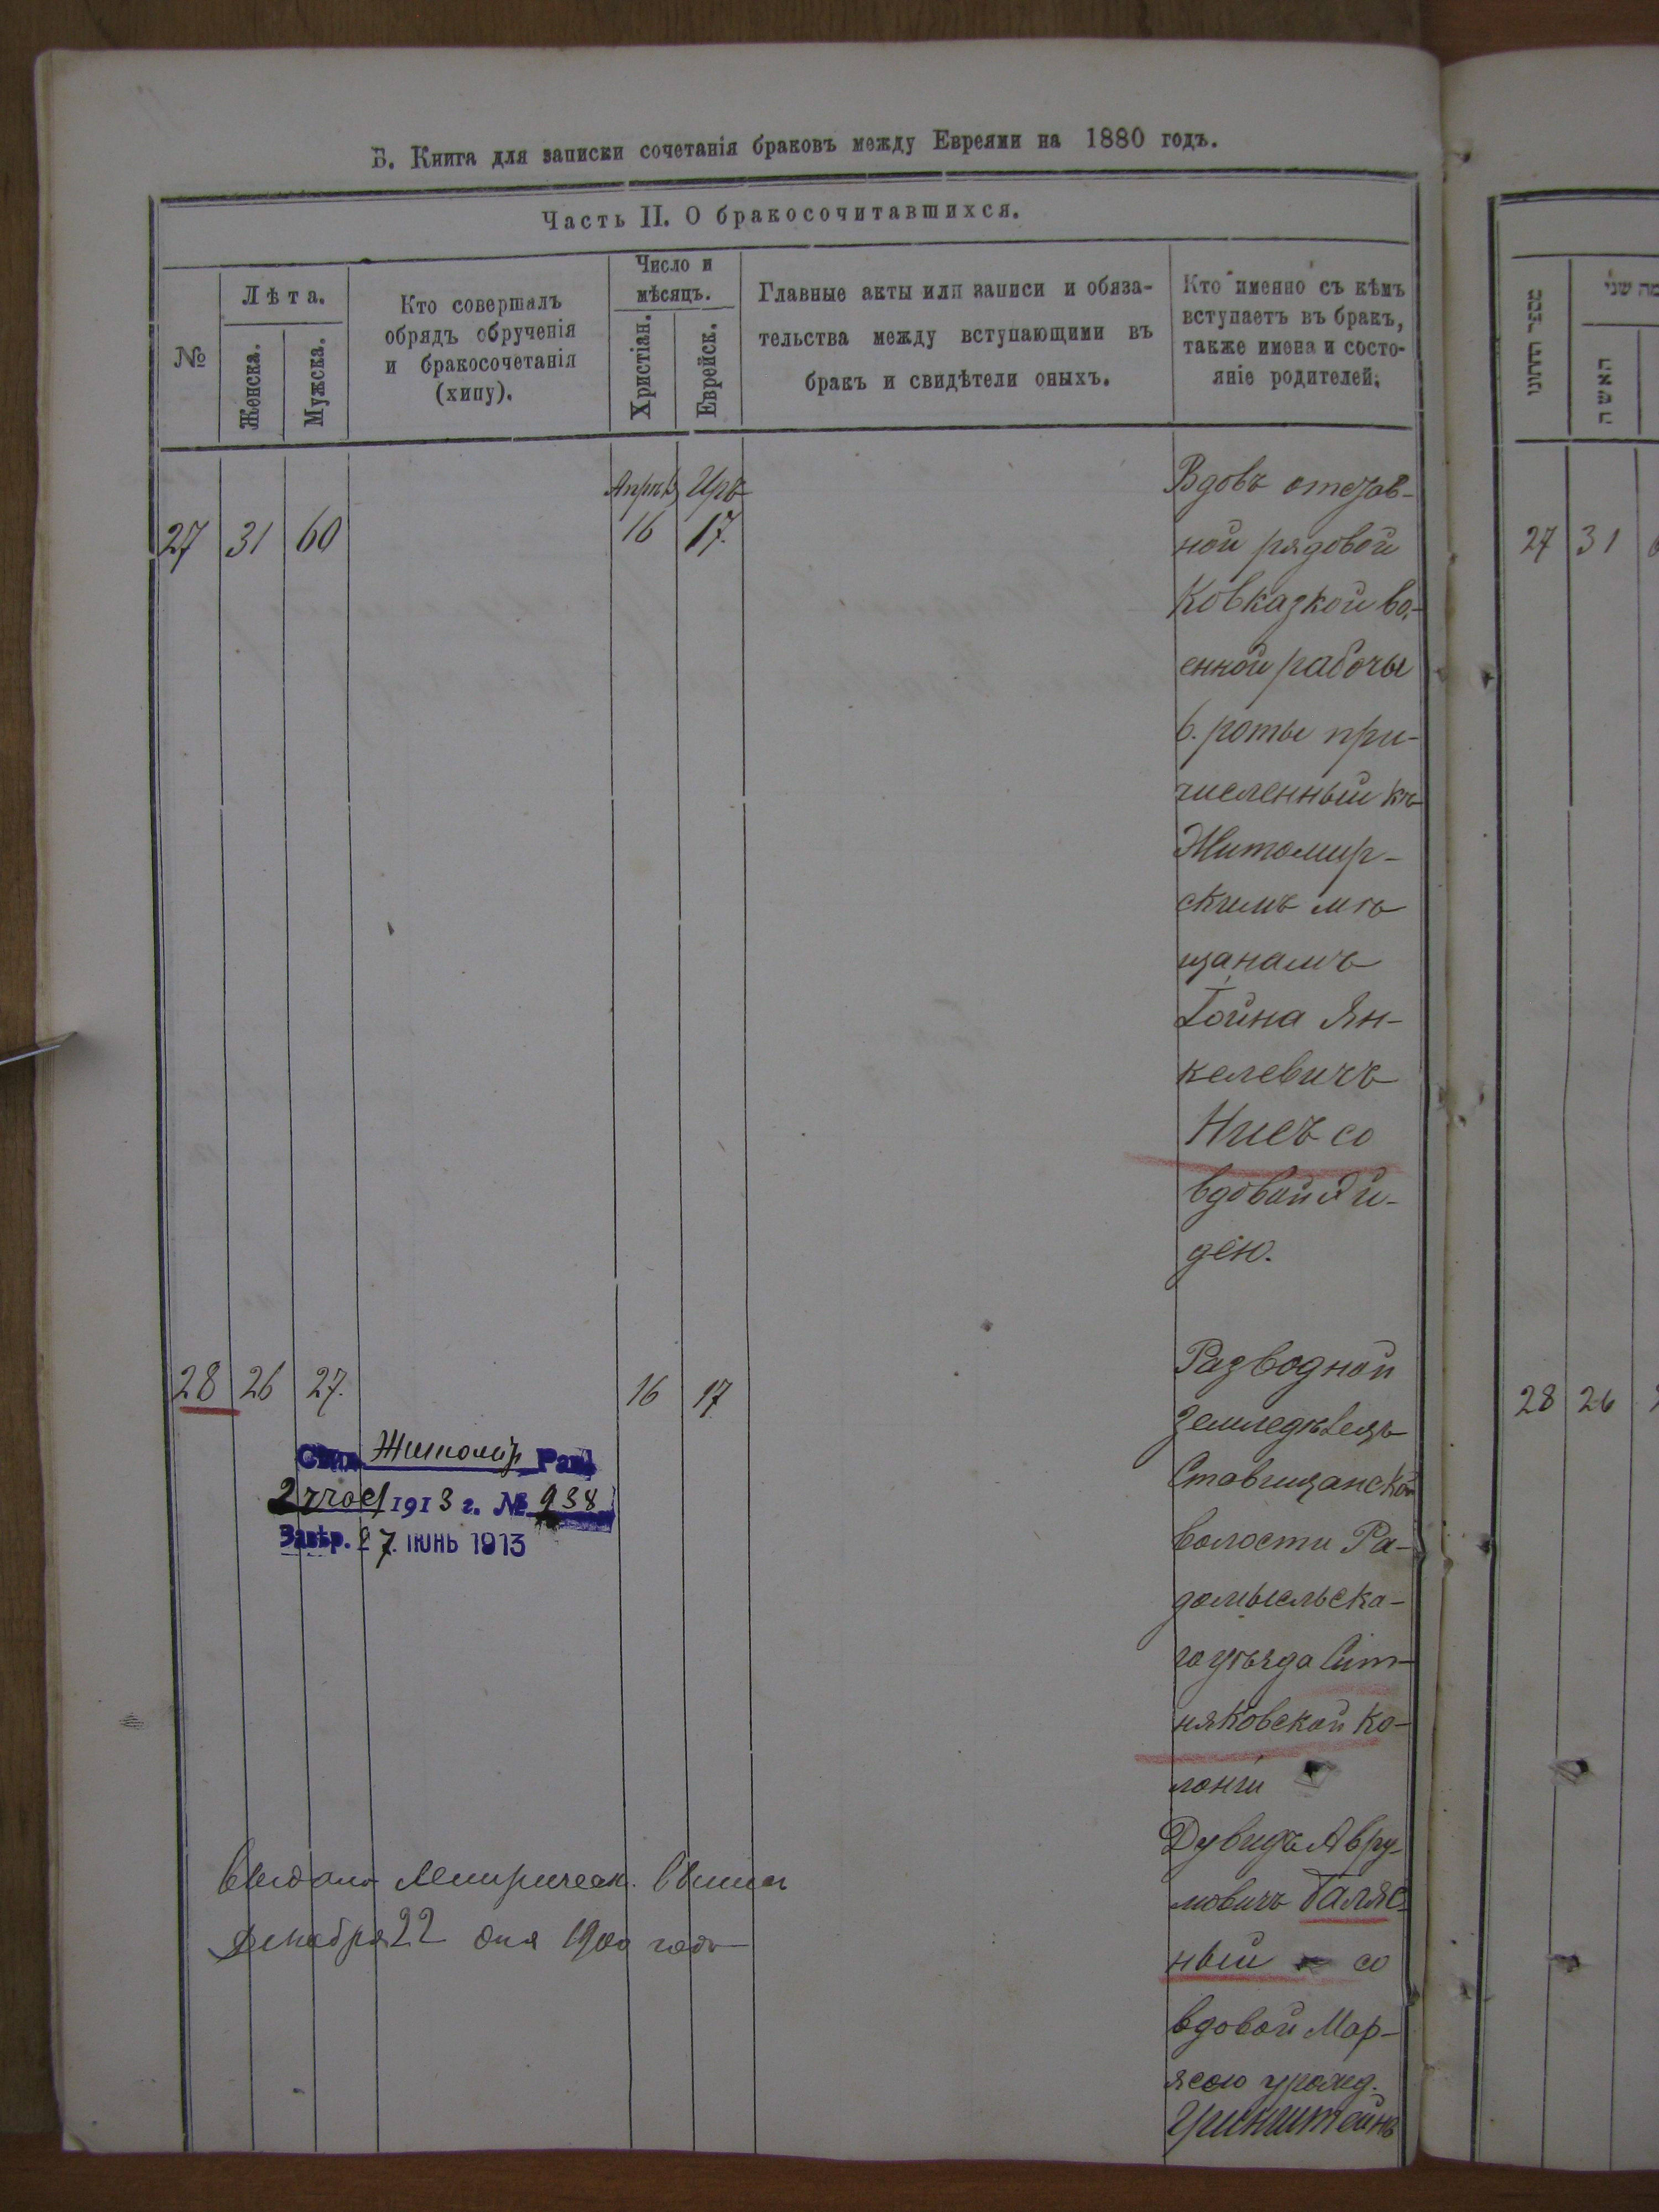 Б. Книга для записки сочетанія браковъ между Евреями на 1880 годъ.
Часть II. О бракосочитавшихся.
№
Лѣта.
Женска.
Мужска.
Кто совершалъ
обрядъ обрученія
и бракосочетанія
(хипу).
Число и
мѣсяцъ.
Христіан.
Еврейск.
Главные акты или записи и обяза-
тельства между вступающими въ
бракъ и свидѣтели оныхъ.
Кто именно съ кѣмъ
вступаетъ въ бракъ,
также имена и состо-
яніе родителей.
27 31 60
16 17.
Вдовъ отстав-
ной рядовой
Ковказкой во-
енной рабочы
роты при-
численный къ
Житомир-
скимъ мѣ
щанамъ
Гойна Ян-
келевичъ
Нисъ со
вдовой
28 26 27. 16 17
Разводной
Земледѣлецъ
Ставищанской
волости Ра-
домысльска-
го уѣзда Сит-
няковской ко-
лонги
Дувидъ Авру-
мовичъ Галяс-
ный со
вдовой Мар-
ясею урожд.
Гринштейнъ
Житомир Рав
1913 г. № 938
Завѣр. 27. ІЮНЬ 1913
Выдана Метрическ.
Декабря 22 дня 1900 года
האשה
27 31
28 26